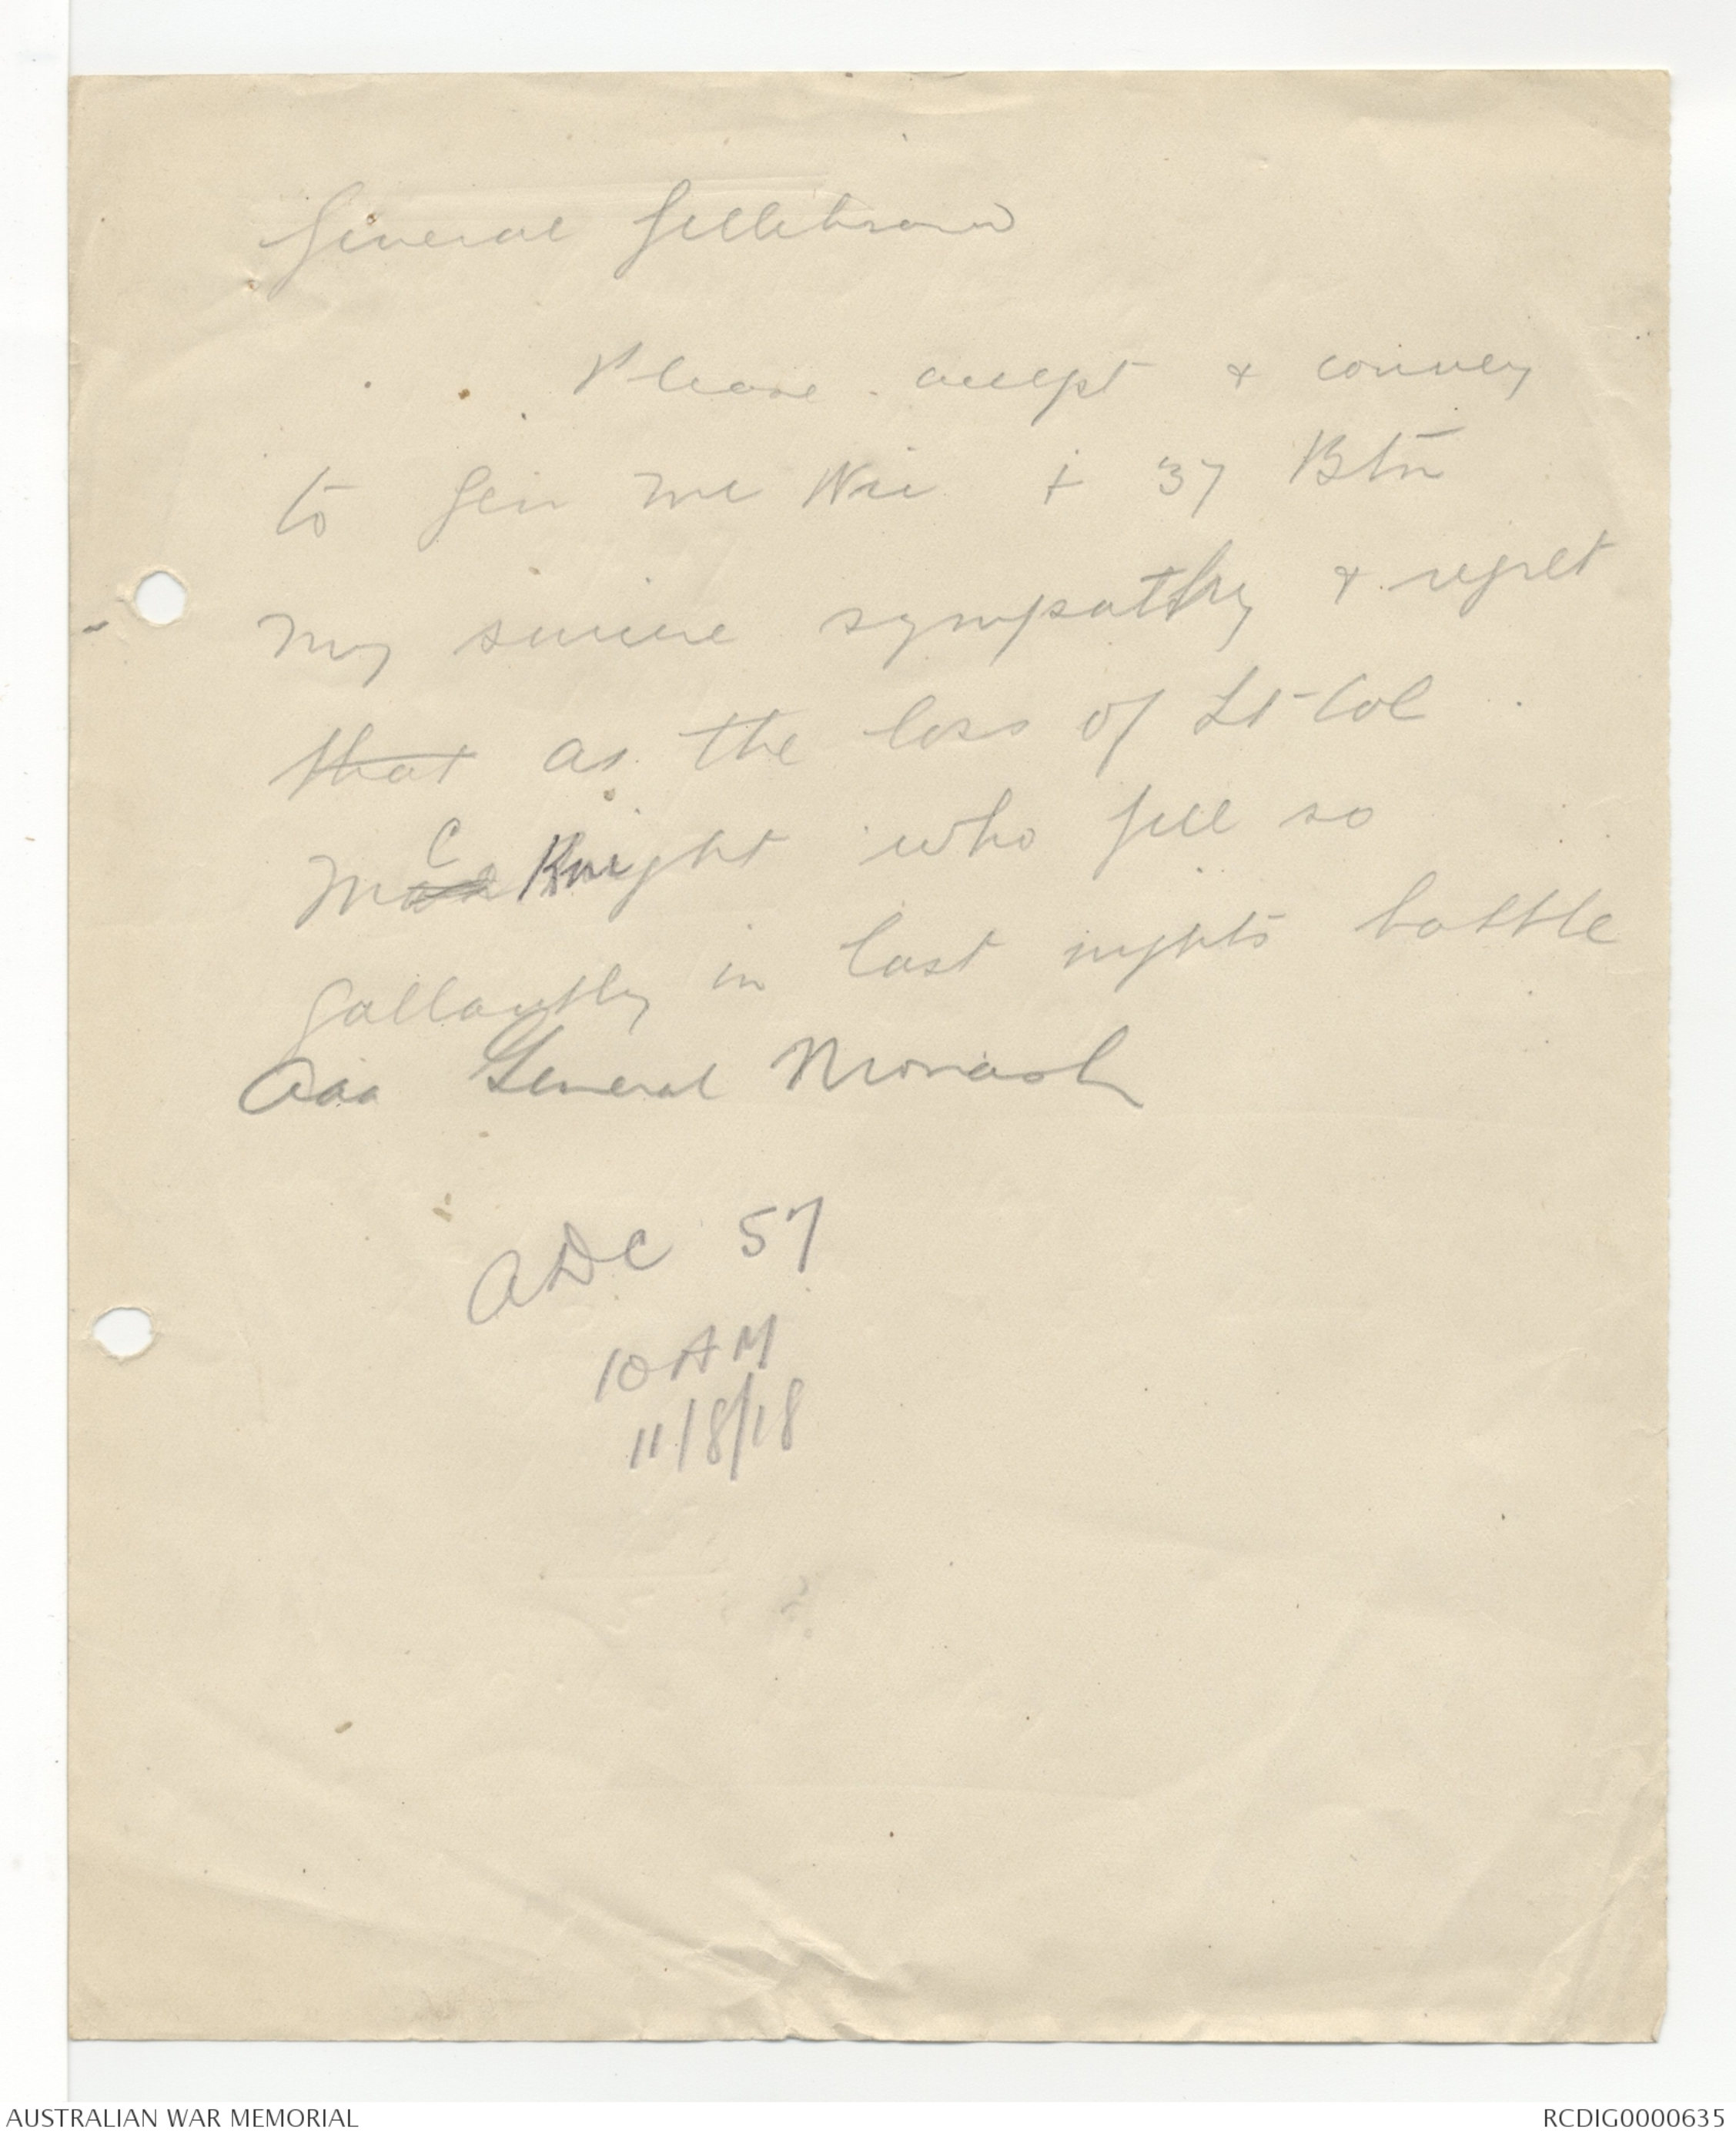 General Gellibrand
Please accept & convey
to Gen Mc Nic & 37 Btn
my sincere sympathy & regret
that as the loss of Lt-Col
Mc Knight who fell so
gallantly in last nights battle
aaa General Monash
ADC 57
10 AM
11/8/18
AUSTRALIAN WAR MEMORIAL
RCDIG0000635